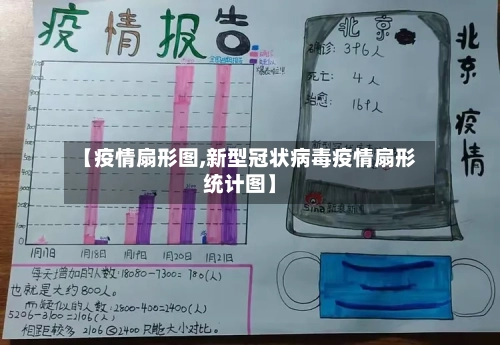 疫情报告
北京
确诊: 396人
死亡: 4人
治愈: 169人
北京疫情
【疫情扇形图,新型冠状病毒疫情扇形
统计图】
1月17日
1月18日
1月19日
1月20日
1月21日
每天增加的人数:18080-7300=780(人)
也就是大约800人。
而疑似的人数:2800-400=2400(人)
5206-3100=2106(人)
相距较多 2106
2400 只能大小对比。